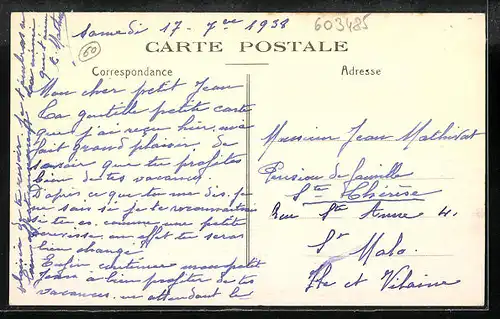 Samedi 17 - 7bre 1938
603485
60
CARTE POSTALE
Correspondance
Adresse
Mon cher petit Jean
La gentille petite carte
que j'ai reçue hier, m'a
fait grand plaisir, de
savoir que tu profites
bien de tes vacances
D'après ce que tu me dis, je
ne sais si je te reconnaitrai
si tu es, comme une petite
en effet tu seras
bien changé.
Enfin continue mon petit
Jean à bien profiter de tes
vacances. en attendant le
plaisir de te revoir, je t'embrasse
Monsieur Jean Mathivat
Pension de famille
Ste Thérèse
Rue Ste Anne 4.
St Malo.
Ille et Vilaine